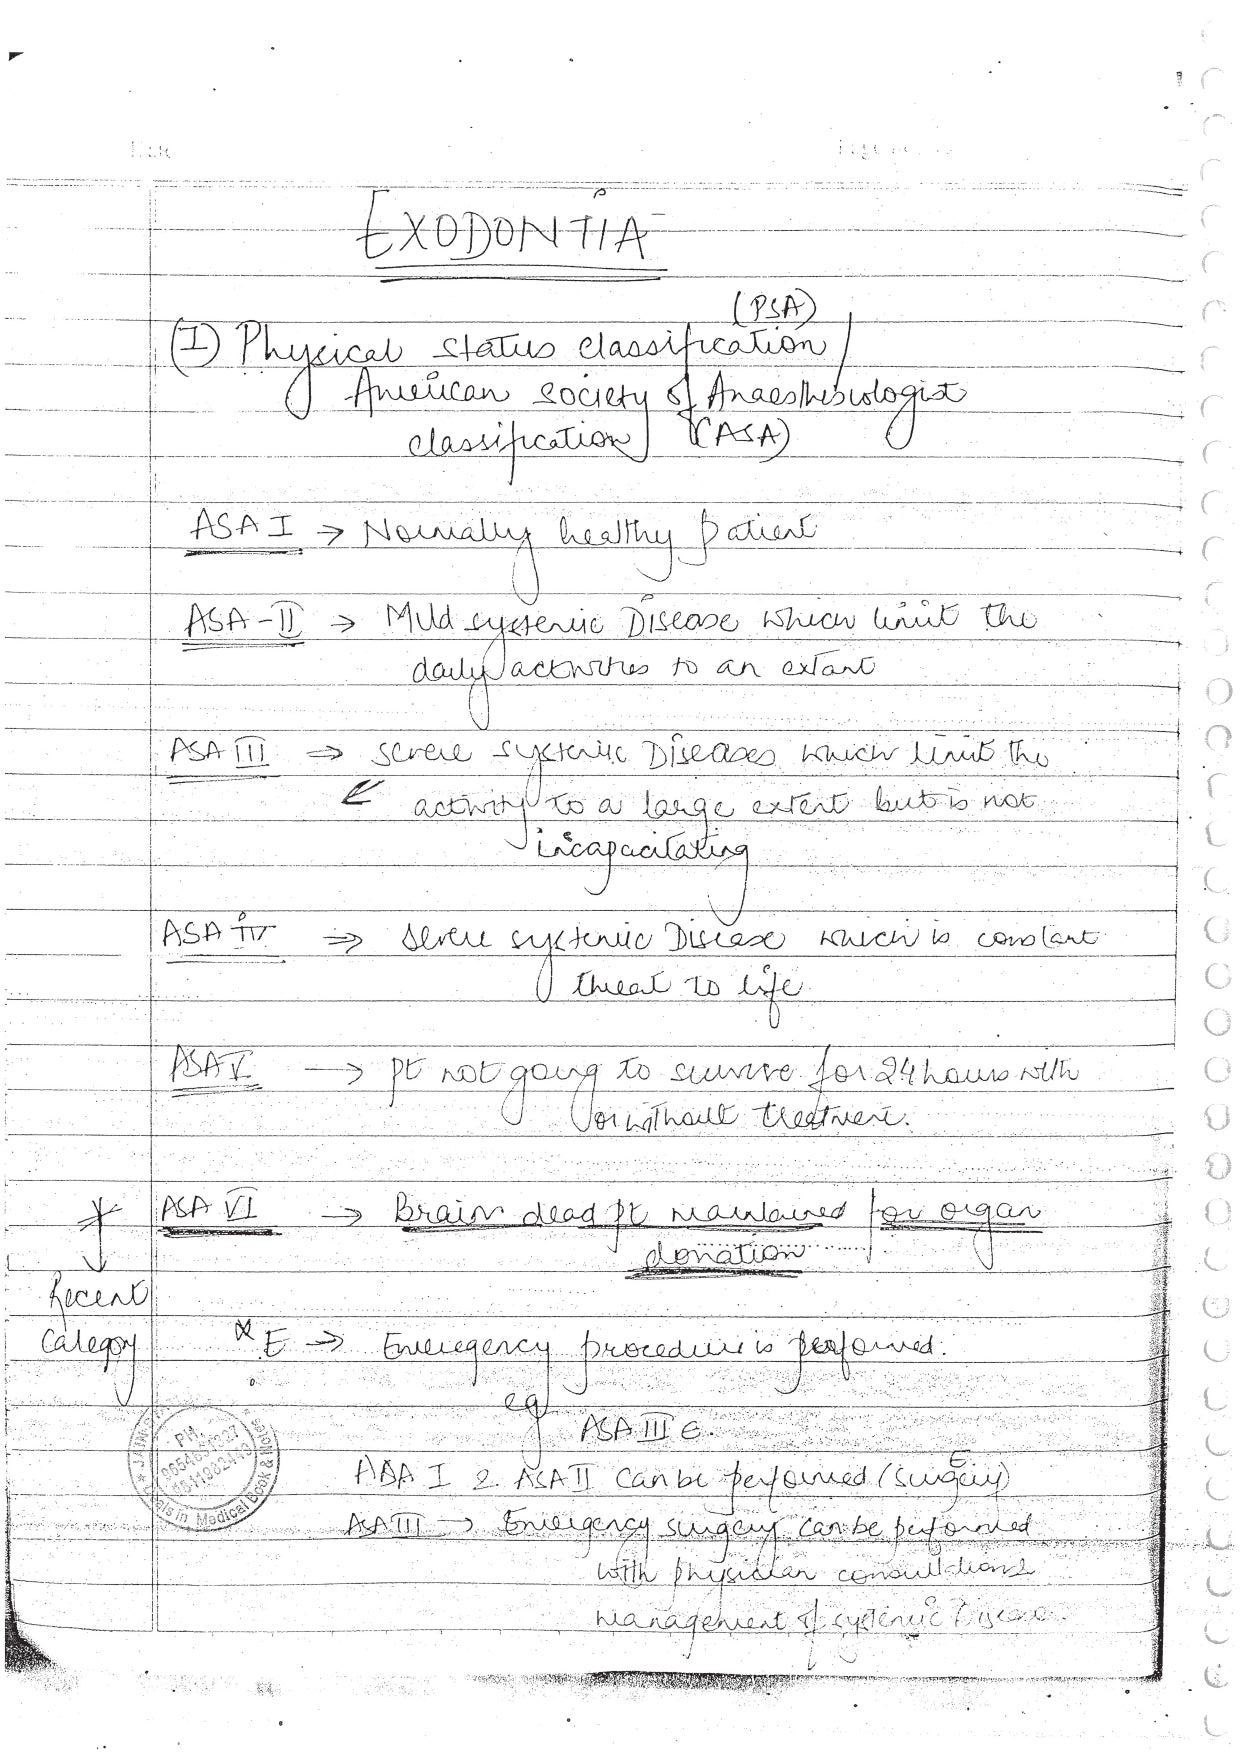 EXODONTIA
(PSA)
(I) Physical status classification /
American society of Anaesthesiologist
classification (ASA)
ASA I → Normally healthy patient
ASA-II → Mild systemic Disease which limit the
daily activities to an extant
ASA III ⇒ severe systemic Diseases which limit the
activity to a large extent but is not
incapacitating
ASA IV ⇒ severe systemic Disease which is constant
threat to life
ASA V → pt not going to survive for 24 hours with
or without treatment.
ASA VI → Brain dead pt maintained for organ
donation
Recent
category
* E → Emergency procedure is performed.
eg
ASA III E.
ASA I & ASA II can be performed (surgery)
E
ASA III → Emergency surgery can be performed
with physician consultation &
management of systemic Disease.
PH.
als in Medical Book & Notes